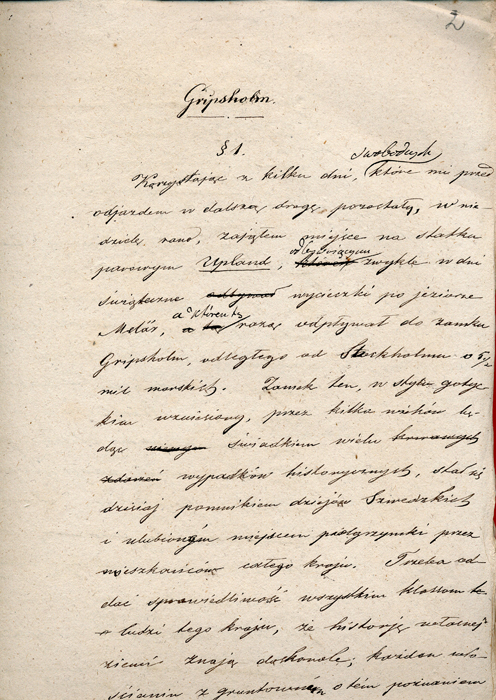 2
Gripsholm.
§ 1.
swobodnych
Korzystając z kilku dni, które mi przed
odjazdem w dalszą drogę pozostały, w nie-
dzielę rano, zająłem miejsce na statku
odbywającym
parowym Upland, zwykle w dni
świąteczne odbywał wycieczki po jeziorze
a którento
Melar, a tą razą odpływał do zamku
Gripsholm, odległego od Stockholmu o 5 1/2
mil morskich. Zamek ten, w stylu goty-
kim wzniesiony, przez kilka wieków bę-
dąc świadkiem wielu krwawych
zdarzeń wypadków historycznych, stał się
dzisiaj pomnikiem dziejów Szwedzkich
i ulubionym miejscem pielgrzymki przez
mieszkańców całego kraju. Trzeba od-
dać sprawiedliwość wszystkim klassom te-
o ludzi tego kraju, że historję własnej
ziemi znają doskonale; każden wło-
ścianin z gruntownem o tem poznaniem